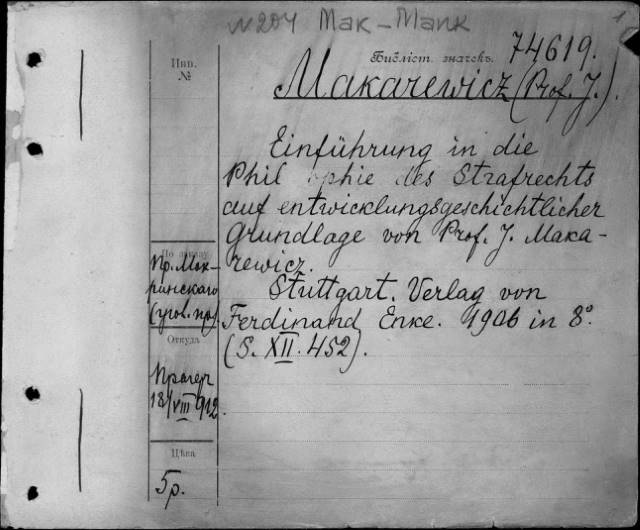 N 204 Мак – Манк
1
Инв.
№
Библіот. значекъ.
74619.
Makarewicz (Prof. J.).
Einführung in die
Philosophie des Strafrechts
auf entwicklungsgeschichtlicher
Grundlage von Prof. J. Maka-
rewicz.
Stuttgart. Verlag von
Ferdinand Enke. 1906 in 8°.
(S. XII. 452).
По заказу
Пр. Мок-
ринскаго
(угол. пр.)
Откуда
Прагер
18/VIII 912.
Цѣна
5 р.